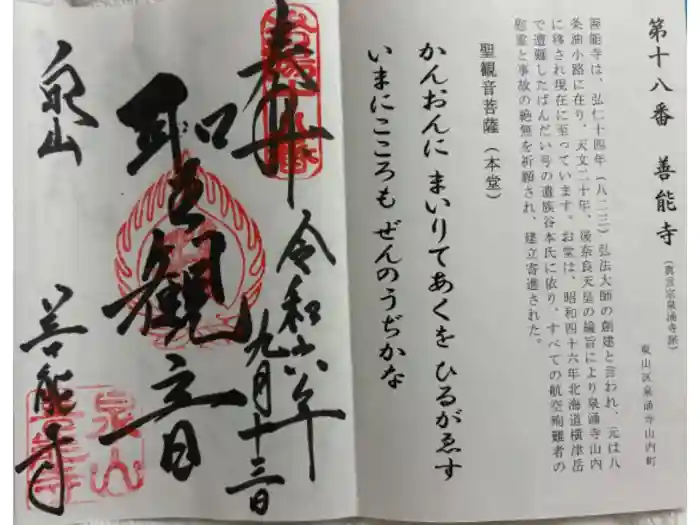 第十八番 善能寺
(真言宗泉涌寺派)
東山区泉涌寺山内町
善能寺は、弘仁十四年(八二三)弘法大師の創建と言われ、元は八
条油小路に在り、天文二十年、後奈良天皇の綸旨により泉涌寺山内
に移され現在に至っています。お堂は、昭和四十六年北海道横津岳
で遭難したばんだい号の遺族谷本氏に依り、すべての航空殉難者の
慰霊と事故の絶無を祈願され、建立寄進された。
聖観音菩薩(本堂)
かんおんに まいりてあくを ひるがゑす
いまにこころも ぜんのうぢかな
奉拝
令和六年
九月十三日
聖観音
泉山
善能寺